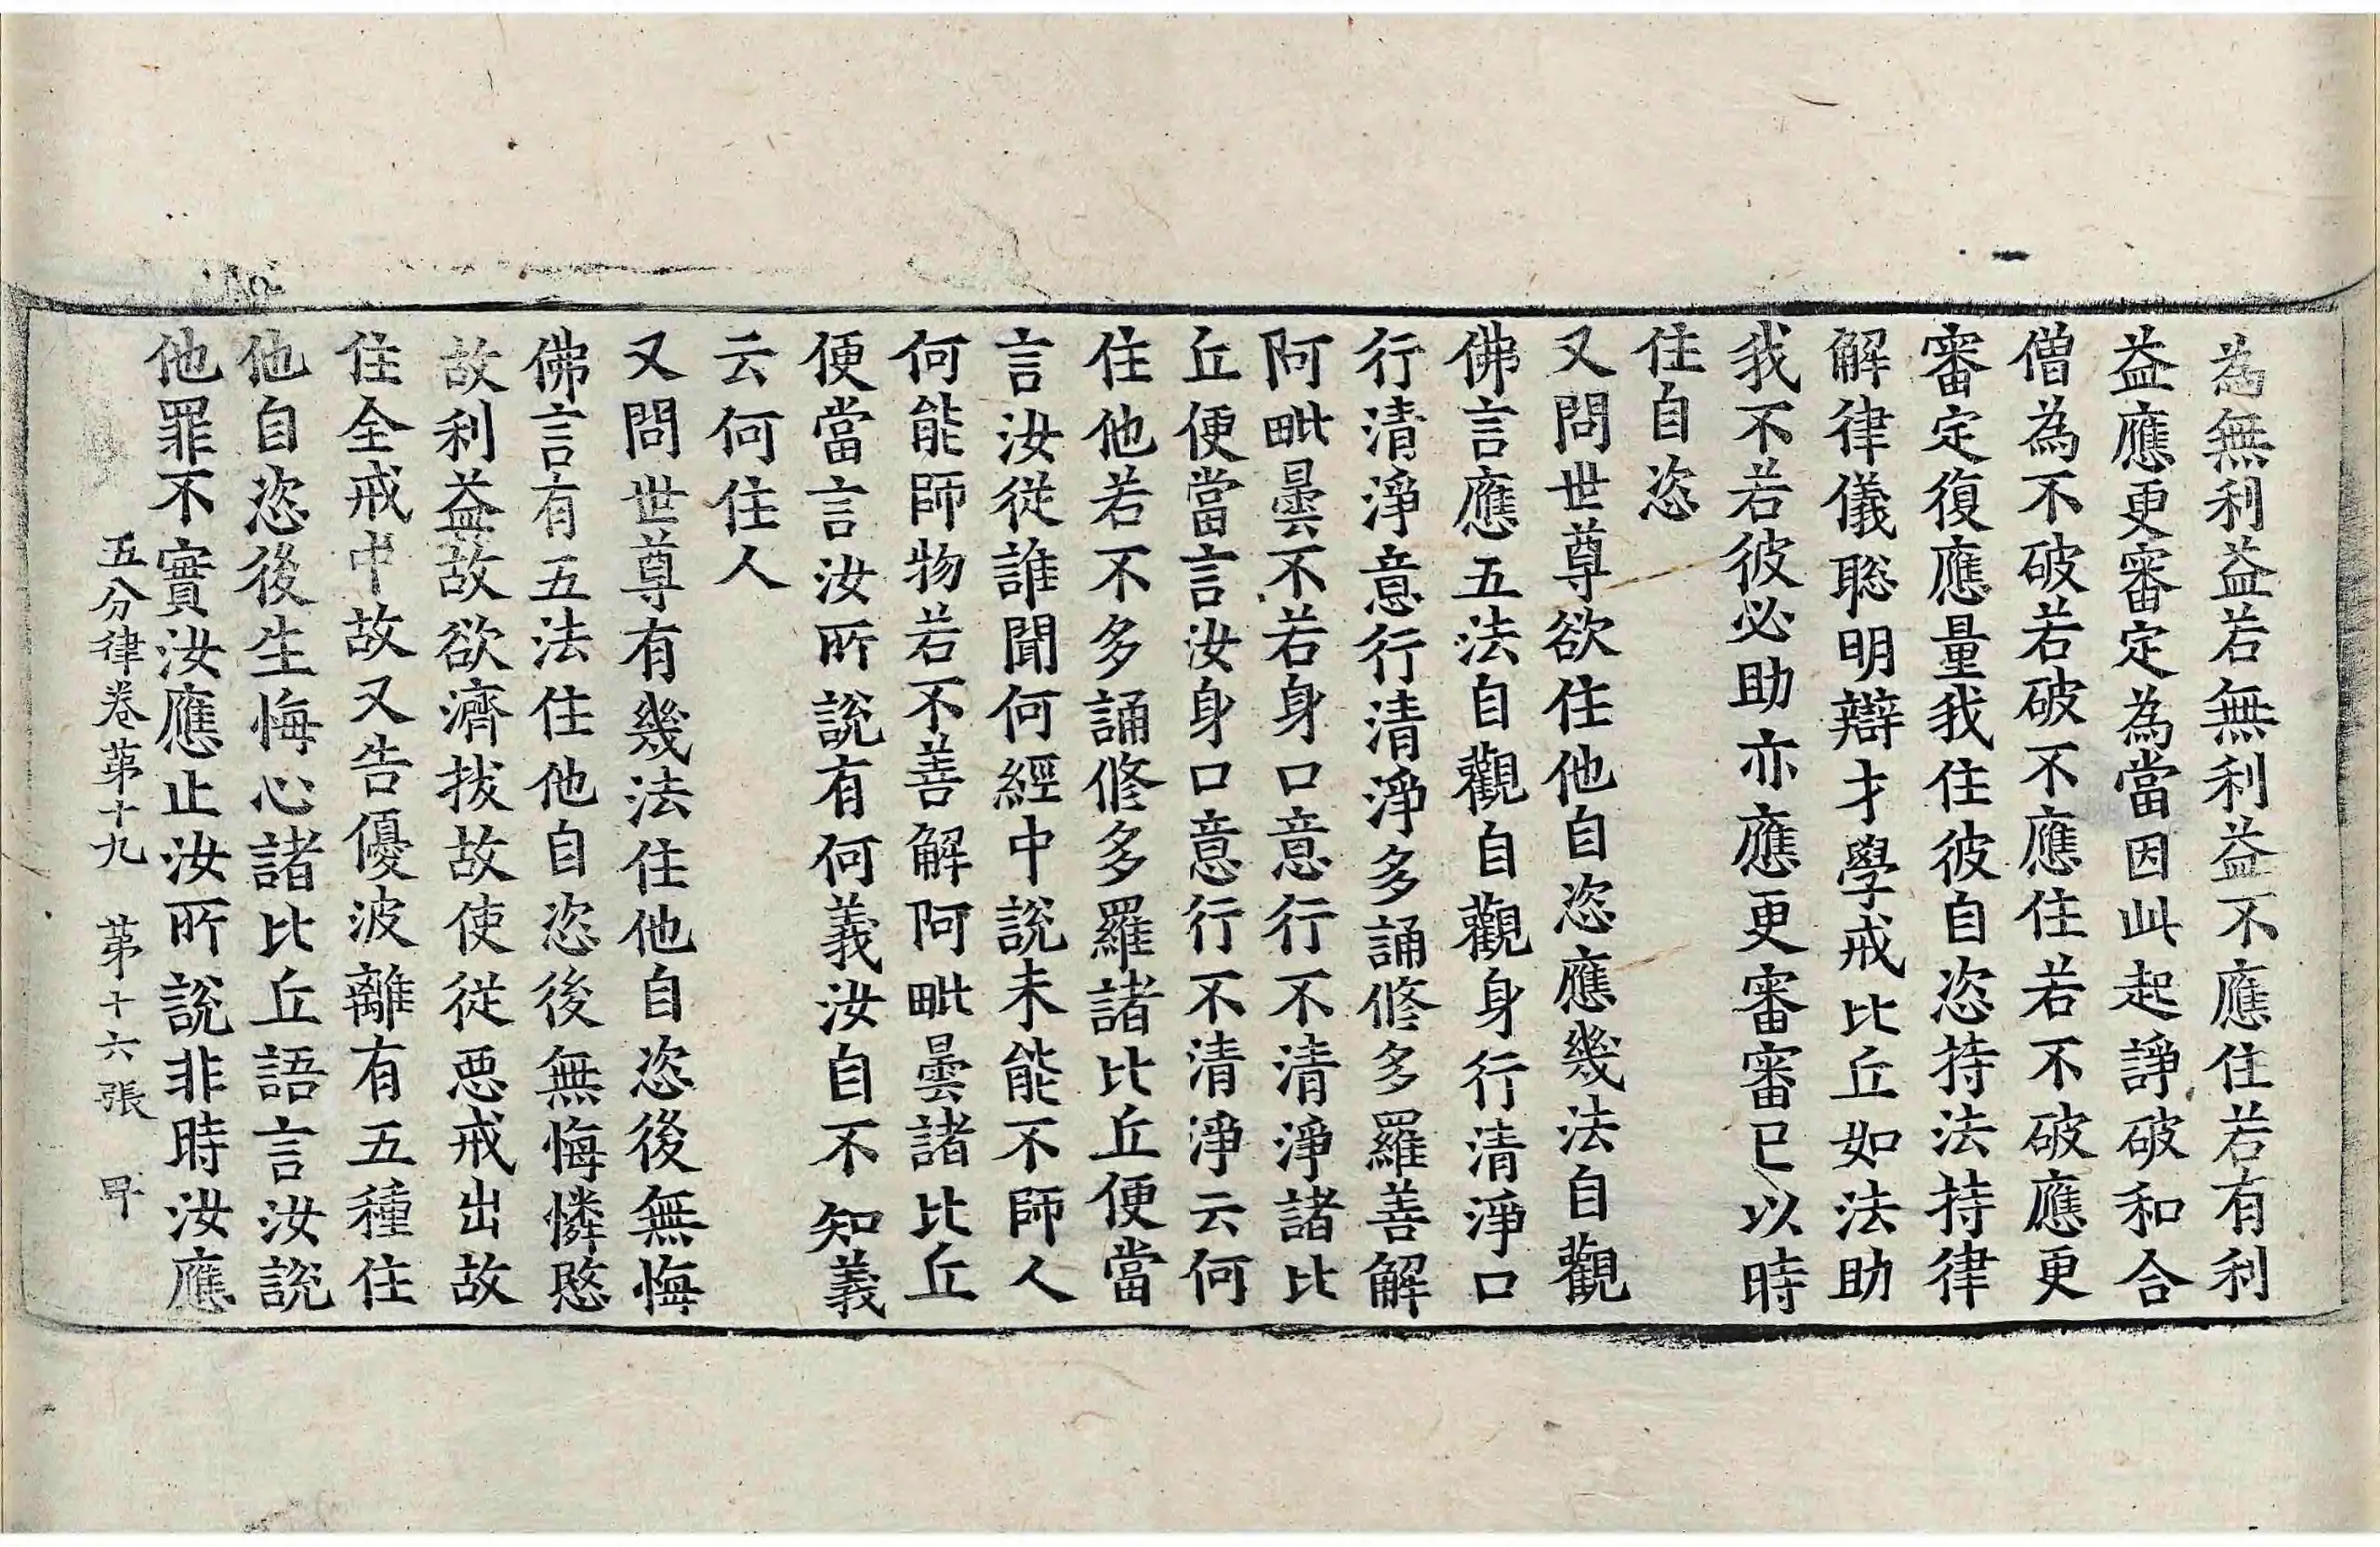 為無利益若無利益不應住若有利
益應更審定為當因此起諍破和合
僧為不破若破不應住若不破應更
審定復應量我住彼自恣持法持律
解律儀聡明辯才學戒比丘如法助
我不若彼必助亦應更審審已以時
住自恣
又問世尊欲住他自恣應幾法自觀
佛言應五法自觀自觀身行清淨口
行清淨意行清淨多誦修多羅善解
阿毗曇不若身口意行不清淨諸比
丘便當言汝身口意行不清淨云何
住他若不多誦修多羅諸比丘便當
言汝從誰聞何經中說未能不師人
何能師物若不善解阿毗曇諸比丘
便當言汝所說有何義汝自不知義
云何住人
又問世尊有幾法住他自恣後無悔
佛言有五法住他自恣後無悔憐愍
故利益故欲濟拔故使從惡戒出故
住全戒中故又告優波離有五種住
他自恣後生悔心諸比丘語言汝說
他罪不實汝應止汝所說非時汝應
五分律卷第十九 第十六張